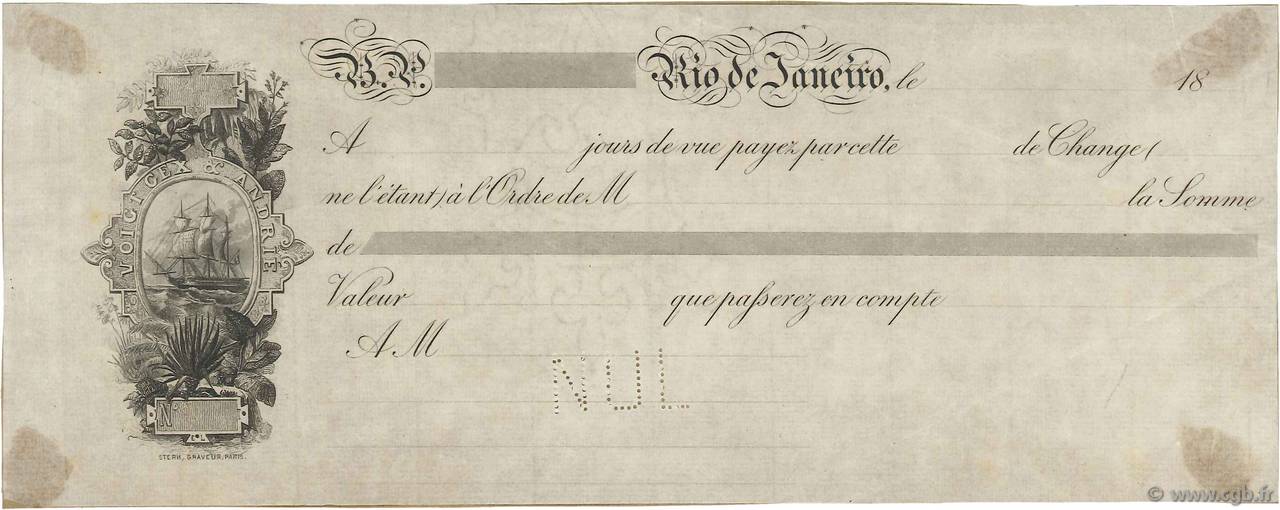 B.P. Rio de Janeiro, le 18
A jours de vue payez par cette de Change (
ne l'étant) à l'Ordre de M la Somme
de
Valeur que passerez en compte
A M
NUL
VOIGT CEX & ANDRIE
No
STERN, GRAVEUR, PARIS.
© www.cgb.fr